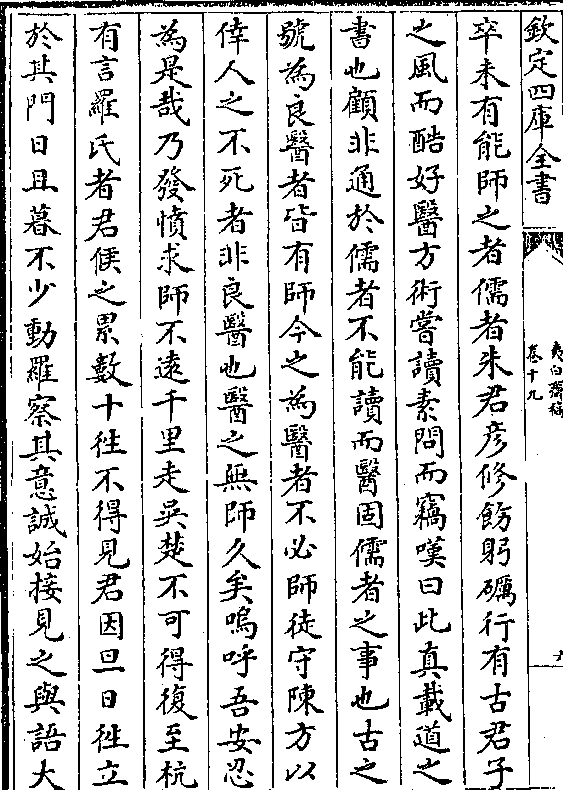 欽定四庫全書
夷白齋稿
卷十九
卒未有能師之者儒者朱君彦修飭躬礪行有古君子
之風而酷好醫方術嘗讀素問而竊嘆曰此真載道之
書也顧非通於儒者不能讀而醫固儒者之事也古之
號為良醫者皆有師今之為醫者不必師徒守陳方以
倖人之不死者非良醫也醫之無師久矣嗚呼吾安忍
為是哉乃發憤求師不遠千里走吳楚不可得復至杭
有言羅氏者君俟之累數十徃不得見君因旦日徃立
於其門日且暮不少動羅察其意誠始接見之與語大